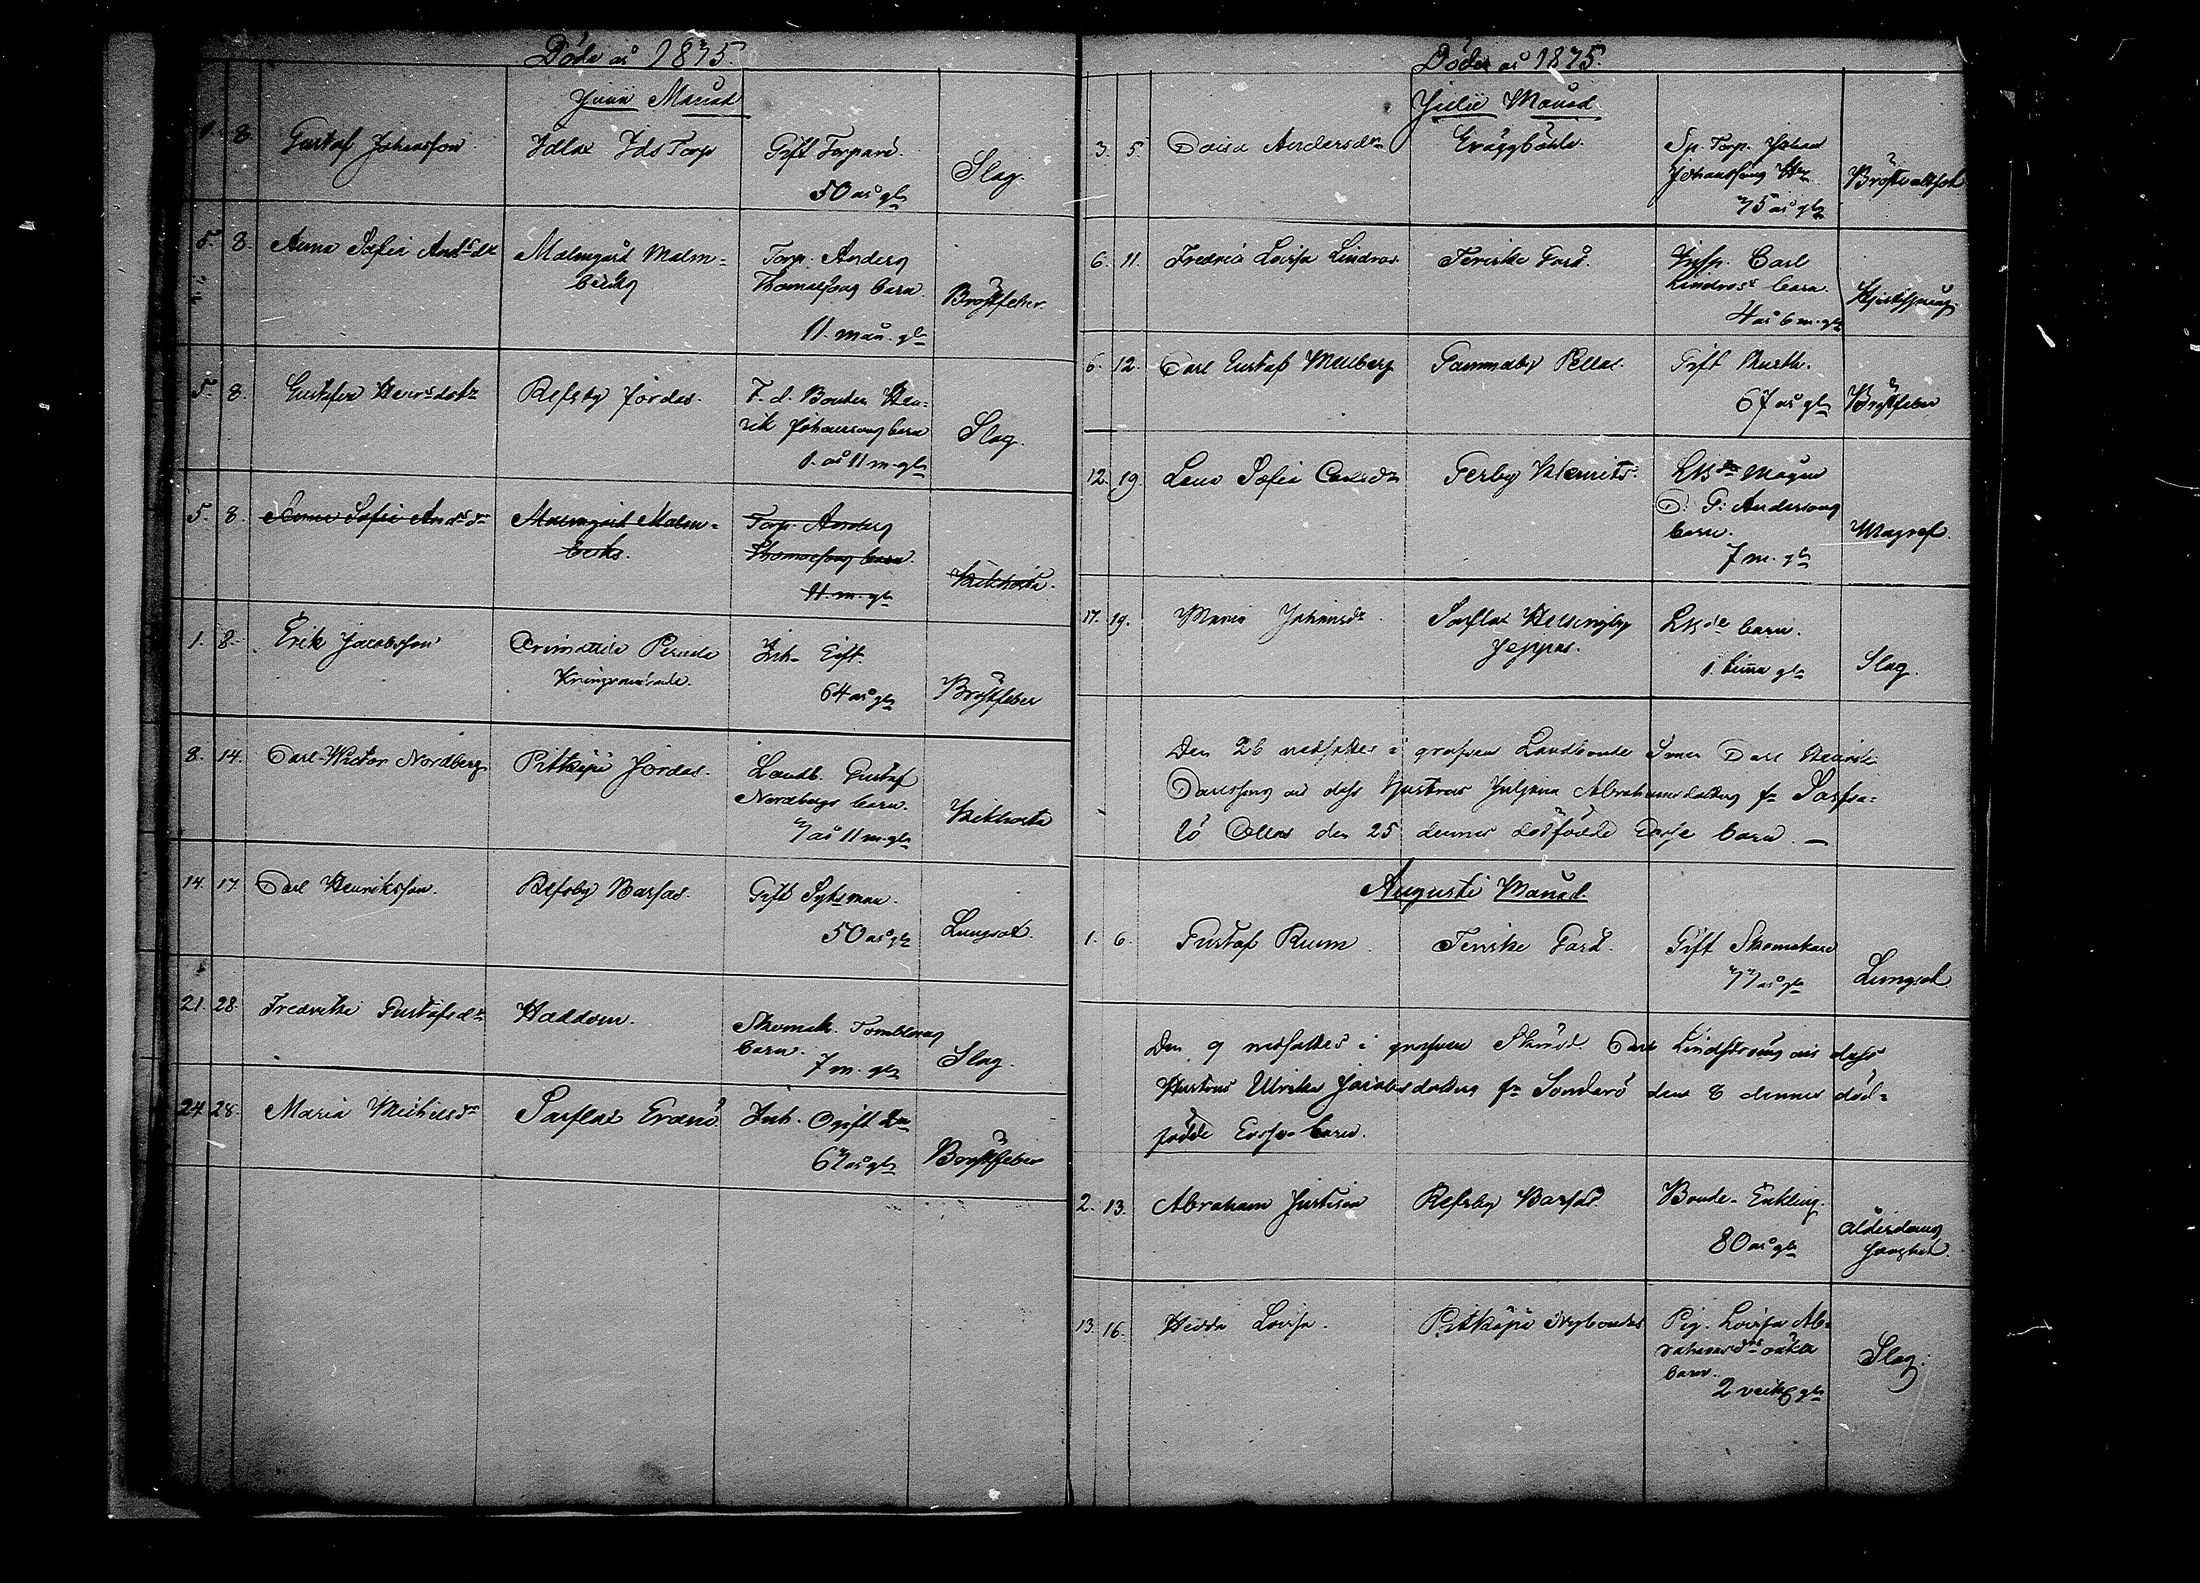 Döde år 1875.
Junii Månad
1. 8. Gustaf Johansson Idlax Ids Torp Gift Torpare.
50 år gl. Slag.
5. 8. Anna Sofia And.s dr Malmgård Malm-
Torp. Anders
Thomassons barn Bröstfeber.
11. mån. gl.
5. 8. Gustafva Henr.sdotr Refsby Jordas. F. d. Bonden Hen-
rik Johanssons barn Slag.
1. år 11 m. gl.
5. 8. Anna Sofia And.s dr Malmgård Malm-
Torp. Anders
Thomassons barn.
11. m. gl. Kikhosta.
1. 8. Erik Jacobsson Inh. Gift.
64 år gl. Bröstfeber
8. 14. Carl Victor Nordberg Pitkäpä Jordas. Landb. Gustaf
Nordbergs barn.
7 år 11 m. gl. Kikhosta
14. 17. Carl Henriksson. Refsby Barsas. Gift Sytsman.
50 år gl. Lungsot.
21. 28. Fredrika Gustafsdr Haddom. Skomak.
barn.
7 m. gl. Slag.
24. 28. Maria Michelsdr Sarflax Inh. Ogift
Bröstfeber
Döde år 1875.
Julii Månad.
3. 5. Caisa Andersdr Gräggböle. Sp. Torp. Johan
Johanssons
75 år gl.
6. 11. Fredrica Lovisa Lindros Forsby Gård. Carl
Lindross barn.
4 år 6 m. gl.
6. 12. Carl Gustaf Mellberg Gammelby Pellas. Gift
67 år gl. Bröstfeber
12. 19. Lena Sofia Carlsdr Gerby Klemets.
C. G. Anderssons
barn. Magref.
7 m. gl.
17. 19. Maria Johansdr. Sarflax Helsingby
Jeppas. barn.
1. timma gl. Slag.
Den 26 nedsattes i grafven Landbonde Sonen Carl Henrik
Carlssons och dess hustrus Juljana Abrahamsdotters fr. Sarfsa-
lö Ollas den 25 dennes dödfödde barn. —
Augusti Månad.
1. 6. Gustaf Ruum. Gård. Gift Skomakare
77 år gl. Lungsot.
Den 9 nedsattes i grafven Skrädd. Carl Lindströms och dess
Hustrus Ulrika Jacobsdotters fr. Sondarö den 8 dennes död-
födde barn.
2. 13. Abraham Justison Refsby Barsas Bonde-Enkling.
80 år gl. Ålderdoms
svaghet.
13. 16. Hedda Lovisa. Pitkäpä Nybondas Pig. Lovisa Ab-
rahamsdrs oäkta
barn. Slag.
2 veckor gl.